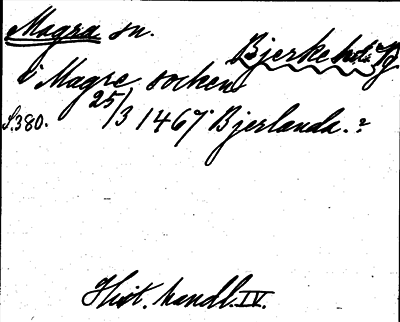 Magra sn.
Bjerke hd. B
i Magre socken
25/3 1467 Bjerlanda.?
S.380.
Hist. handl. IV.